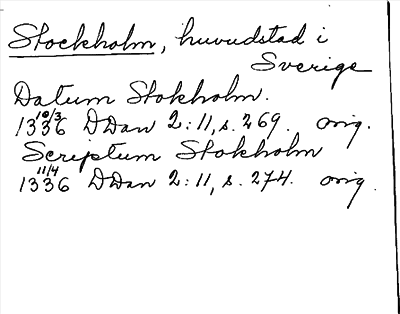 Stockholm, huvudstad i
Sverige
Datum Stokholm.
1336 10/3 DDan 2:11, s. 269. orig.
Scriptum Stokholm
1336 11/4 DDan 2:11, s. 274. orig.